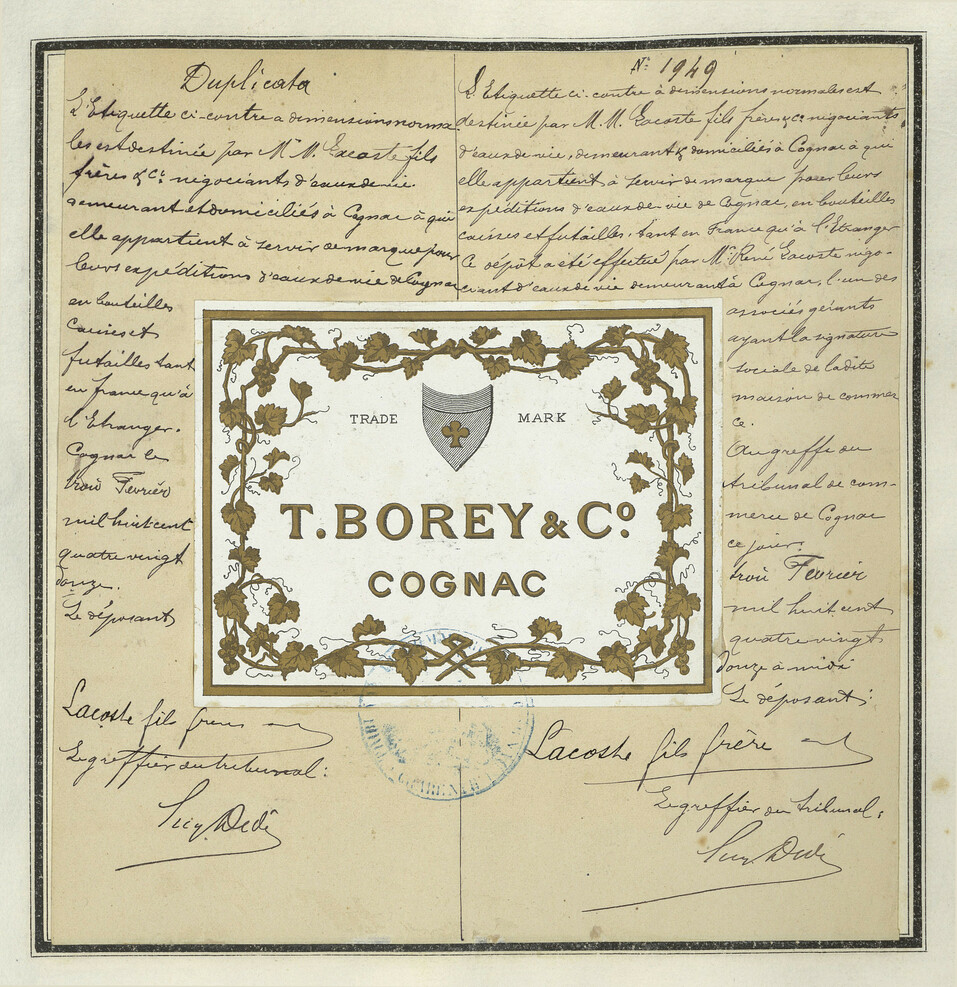 Duplicata
L'Etiquette ci-contre a dimensions norma
les est destinée par MM. Lacoste fils
frères & Cie négociants d'eaux de vie
demeurant et domiciliés à Cognac à qui
elle appartient à servir de marque pour
leurs expéditions d'eaux de vie de Cognac
en bouteilles
caisses et
futailles tant
en france qu'à
l'Etranger.
Cognac le
trois Février
mil huit cent
quatre vingt
douze.
Le déposant
Lacoste fils frères
Le greffier du tribunal:
No 1949
L'Etiquette ci-contre à dimensions normales est
destinée par M.M. Lacoste fils frères & Cie négociants
d'eaux de vie, demeurant & domiciliés à Cognac à qui
elle appartient à servir de marque pour leurs
expéditions d'eaux-de-vie de Cognac, en bouteilles
caisses et futailles, tant en France qu'à l'Etranger
Ce dépôt a été effectué par Mr René Lacoste négo-
ciant d'eaux de vie demeurant à Cognac, l'un des
associés gérants
ayant la signature
sociale de ladite
maison de commer
ce.
Au greffe du
tribunal de com-
merce de Cognac
ce jour.
trois Février
mil huit cent
quatre vingt
douze à midi
Le déposant:
Lacoste fils frère
Le greffier du tribunal:
TRADE MARK
T. BOREY & Co.
COGNAC